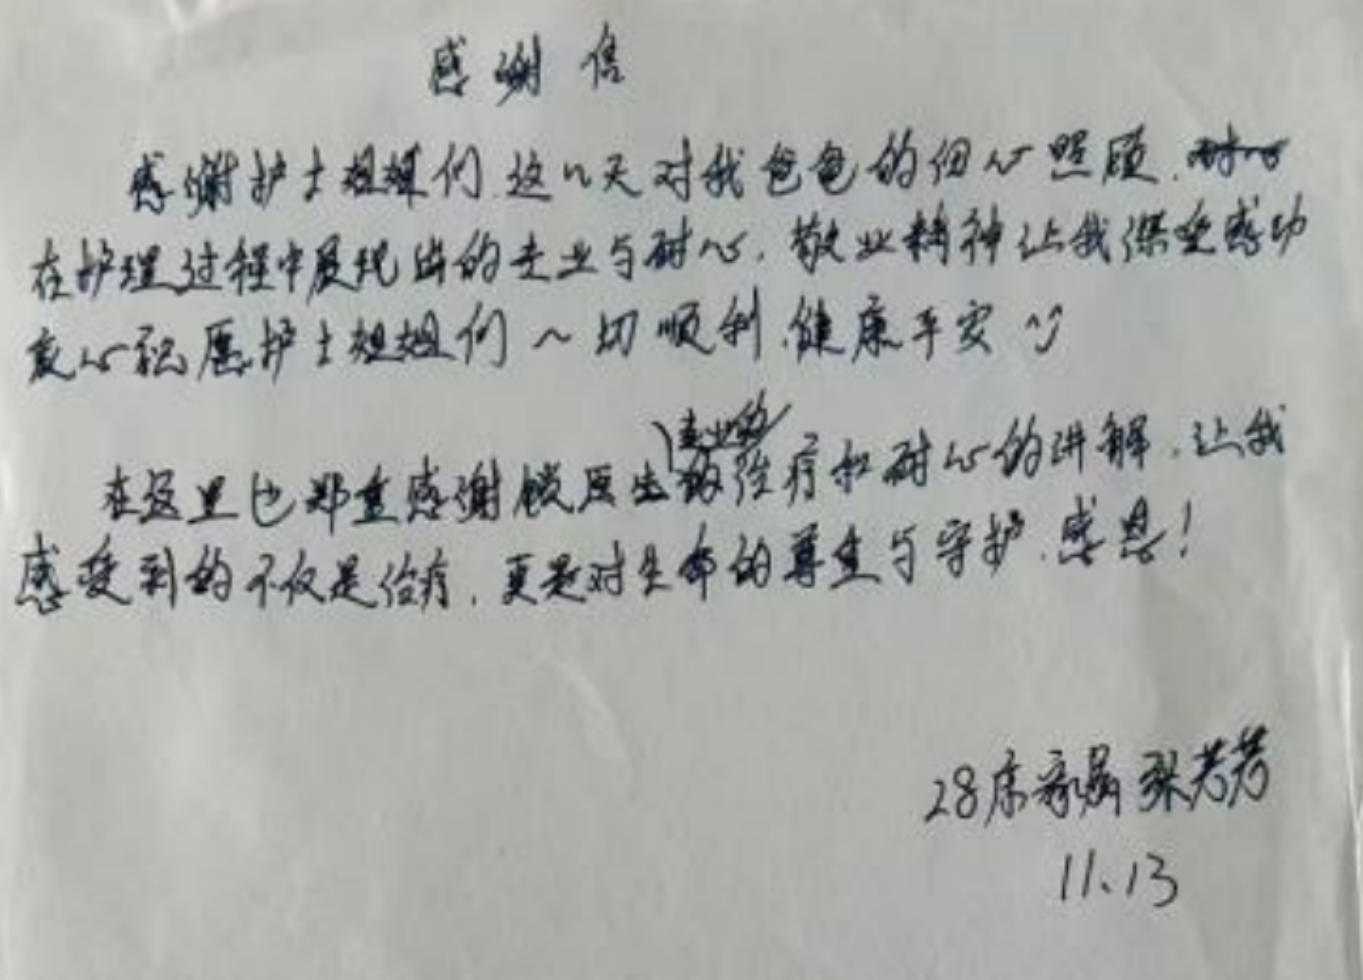 感谢信
感谢护士姐姐们，这几天对我爸爸的细心照顾，
在护理过程中展现出的专业与耐心，敬业精神让我深受感动
衷心祝愿护士姐姐们一切顺利，健康平安
专业的
在这里也郑重感谢医生的治疗和耐心的讲解，让我
感受到的不仅是治疗，更是对生命的尊重与守护，感恩！
28床家属 张芳芳
11.13